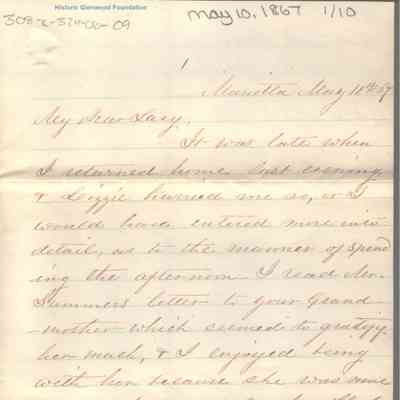 Historic Glenwood Foundation
May 10, 1867 1/10
1
Marietta May 10th 67
My dear Lucy,
It was late when
I returned home last evening
& Lizzie hurried me so, or I
would have entered more into
detail, as to the manner of spend
ing the afternoon I read Mr.
Summers letter to your Grand-
-mother which seemed to gratify
her much, & I enjoyed being
with her because she was more